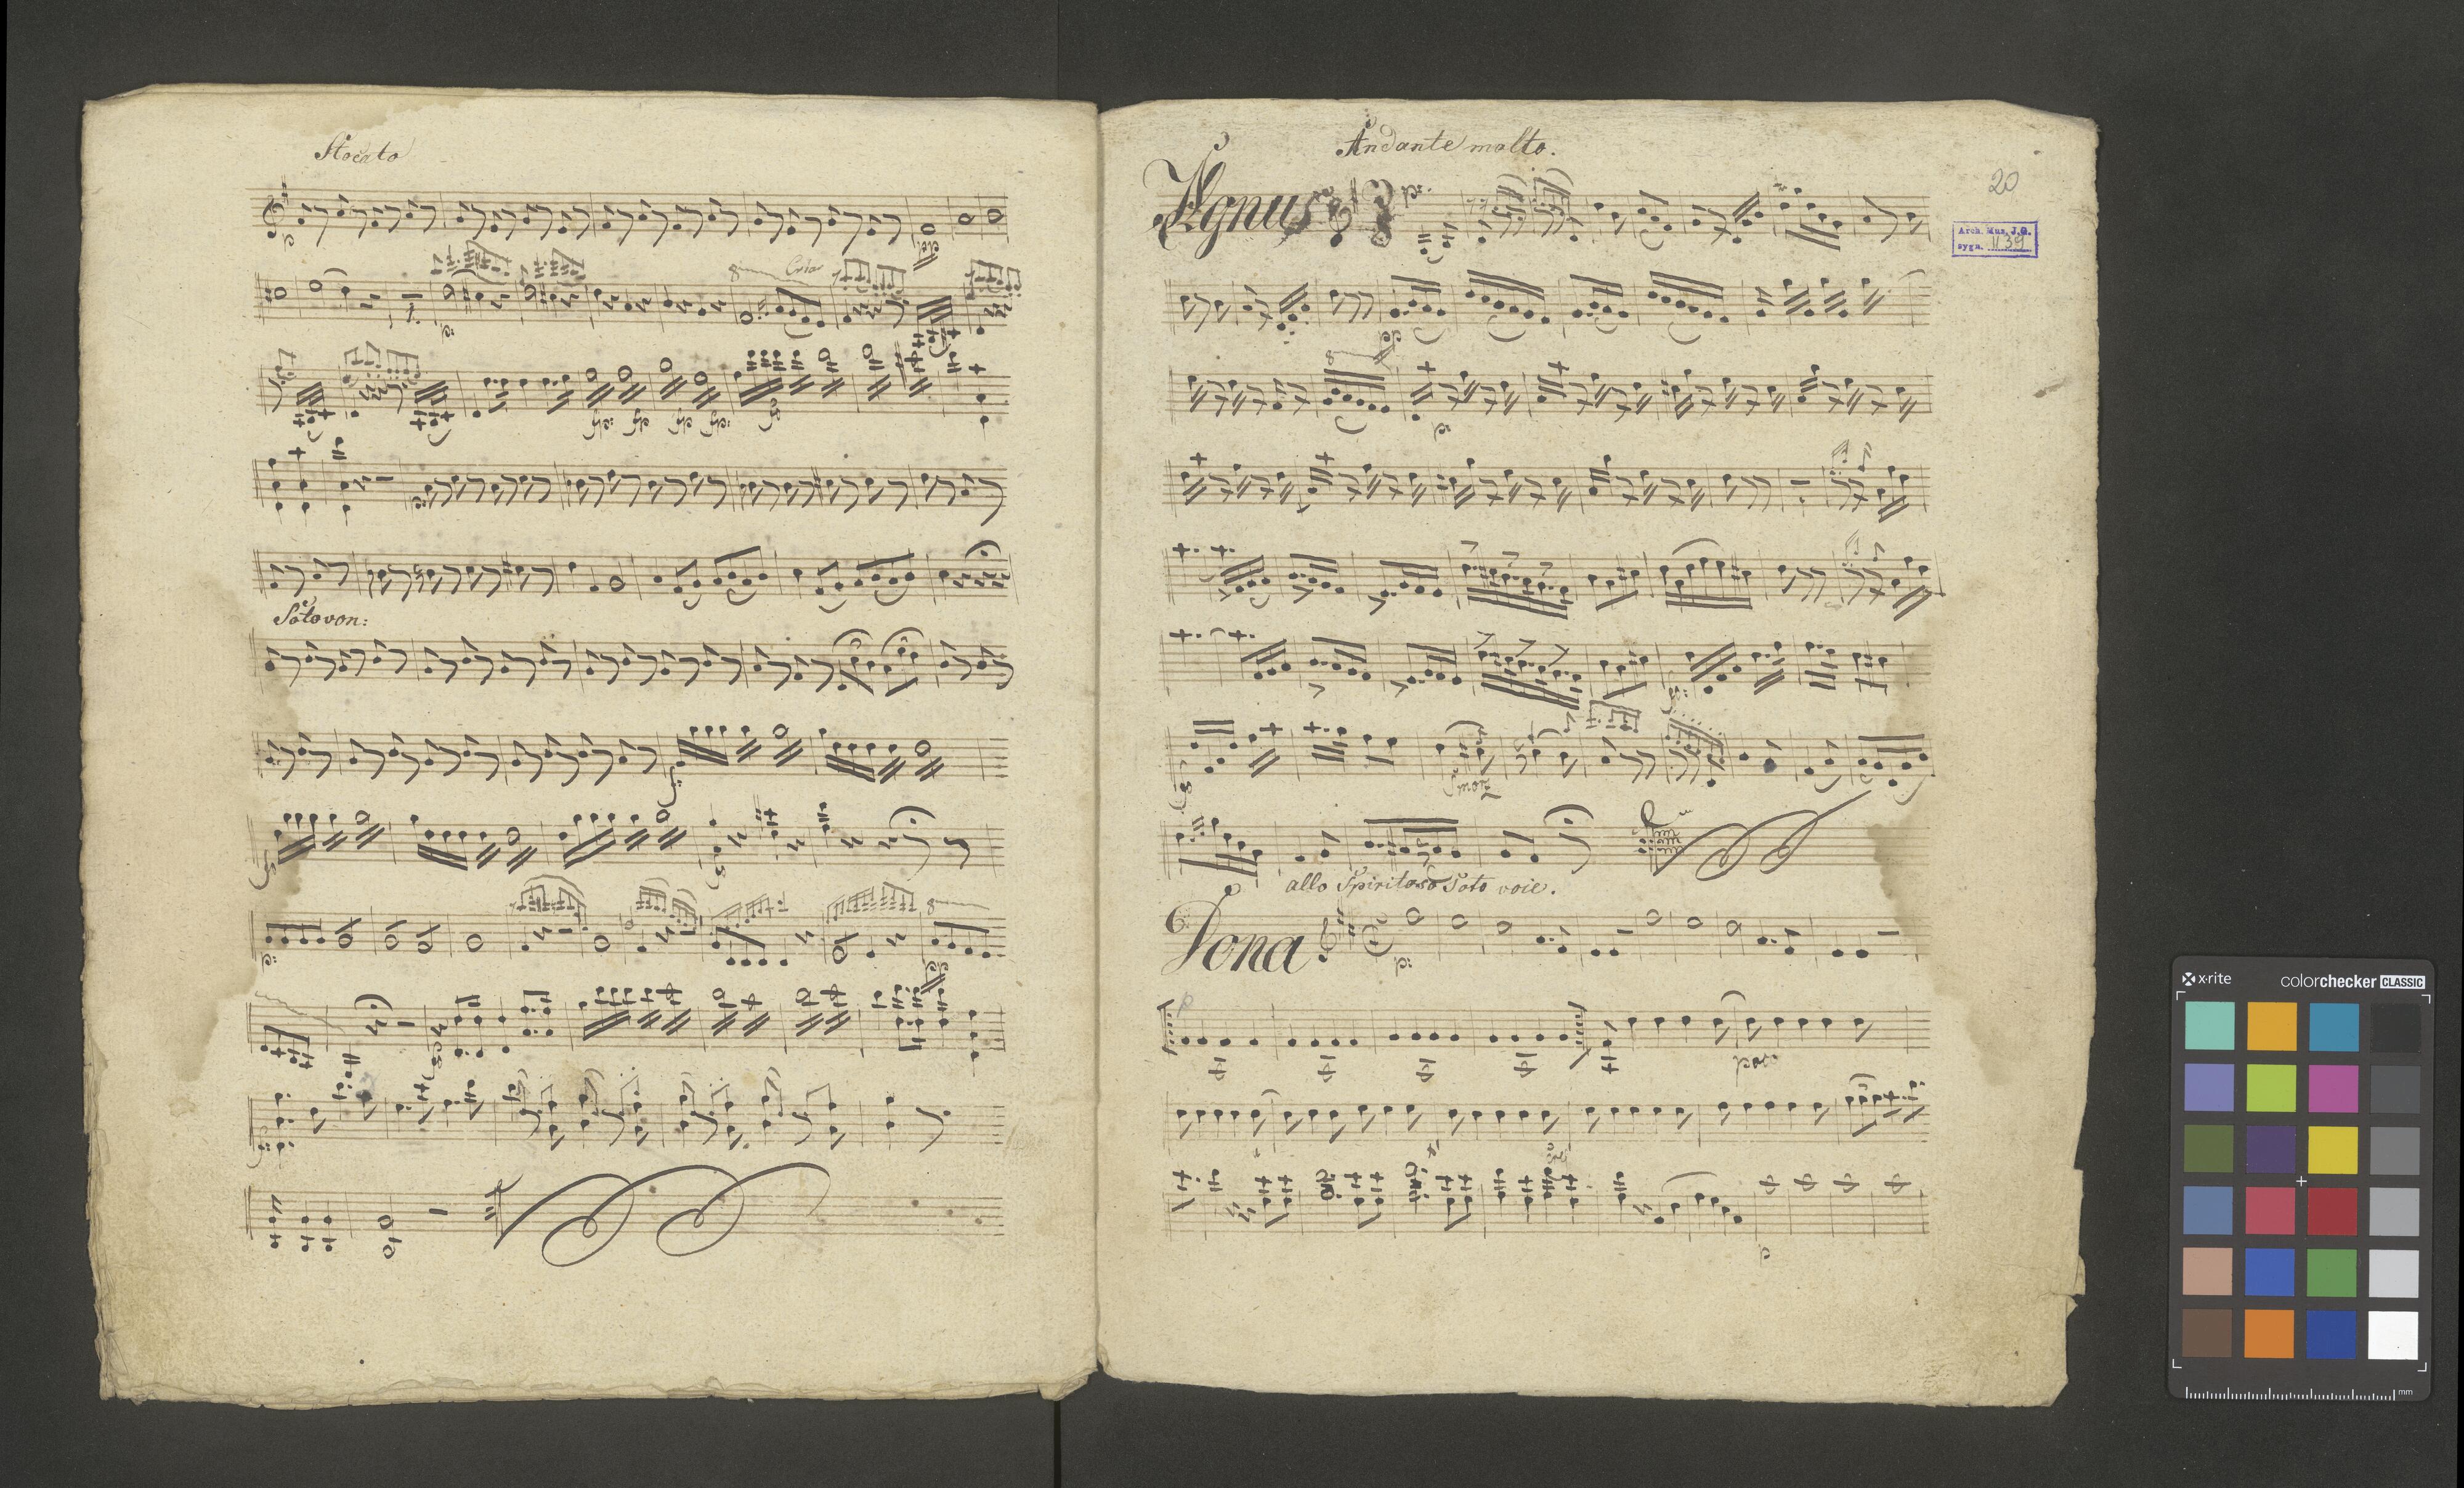 Stocato
p
p:
8
fp: fp fp fp:
Soto von:
f:
p:
8
Andante molto.
Agnus
p:
20
Arch. Mus. J.G.
sygn. II 39
8
p:
morz
allo Spiritoso Soto voie.
Dona
p:
p
poco
p
x-rite
colorchecker CLASSIC
mm